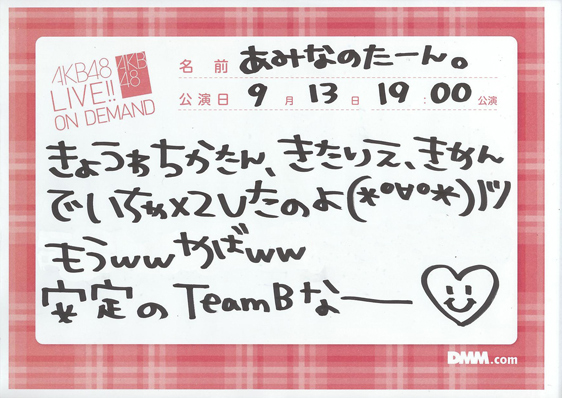 AKB48
LIVE!!
ON DEMAND
AKB
48
名前 あみなのたーん。
公演日 9月13日 19:00公演
きょうゎちかたん、きたりえ、きかん
でいちゃ×2したのよ(*°∀°*)八ツ
もうwwやばww
安定のTeamBなー
DMM.com